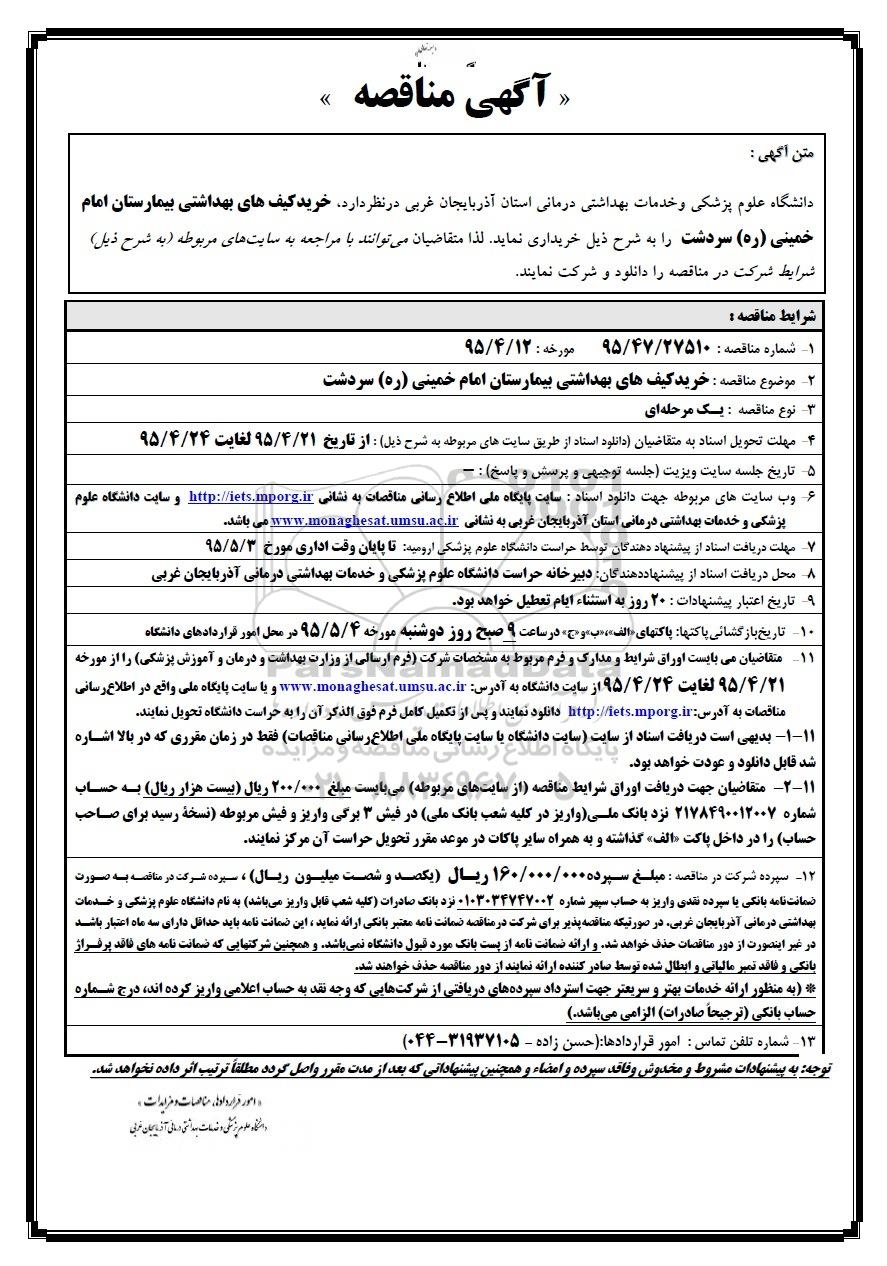 « آگهی مناقصه »
متن آگهی :
دانشگاه علوم پزشکی وخدمات بهداشتی درمانی استان آذربایجان غربی درنظردارد، خریدکیف های بهداشتی بیمارستان امام
خمینی (ره) سردشت را به شرح ذیل خریداری نماید. لذا متقاضیان می‌توانند با مراجعه به سایت‌های مربوطه (به شرح ذیل)
شرایط شرکت در مناقصه را دانلود و شرکت نمایند.
شرایط مناقصه :
۱- شماره مناقصه : ۹۵/۴۷/۲۷۵۱۰ مورخه : ۹۵/۴/۱۲
۲- موضوع مناقصه : خریدکیف های بهداشتی بیمارستان امام خمینی (ره) سردشت
۳- نوع مناقصه : یـک مرحله‌ای
۴- مهلت تحویل اسناد به متقاضیان (دانلود اسناد از طریق سایت های مربوطه به شرح ذیل) : از تاریخ ۹۵/۴/۲۱ لغایت ۹۵/۴/۲۴
۵- تاریخ جلسه سایت ویزیت (جلسه توجیهی و پرسش و پاسخ) : –
۶- وب سایت های مربوطه جهت دانلود اسناد : سایت پایگاه ملی اطلاع رسانی مناقصات به نشانی http://iets.mporg.ir و سایت دانشگاه علوم
پزشکی و خدمات بهداشتی درمانی استان آذربایجان غربی به نشانی www.monaghesat.umsu.ac.ir می باشد.
۷- مهلت دریافت اسناد از پیشنهاد دهندگان توسط حراست دانشگاه علوم پزشکی ارومیه: تا پایان وقت اداری مورخ ۹۵/۵/۳
۸- محل دریافت اسناد از پیشنهاددهندگان: دبیرخانه حراست دانشگاه علوم پزشکی و خدمات بهداشتی درمانی آذربایجان غربی
۹- تاریخ اعتبار پیشنهادات : ۲۰ روز به استثناء ایام تعطیل خواهد بود.
۱۰- تاریخ‌بازگشائی‌پاکتها: پاکتهای«الف»،«ب»و«ج» درساعت ۹ صبح روز دوشنبه مورخه ۹۵/۵/۴ در محل امور قراردادهای دانشگاه
۱۱- متقاضیان می بایست اوراق شرایط و مدارک و فرم مربوط به مشخصات شرکت (فرم ارسالی از وزارت بهداشت و درمان و آموزش پزشکی) را از مورخه
۹۵/۴/۲۱ لغایت ۹۵/۴/۲۴ از سایت دانشگاه به آدرس: www.monaghesat.umsu.ac.ir و یا سایت پایگاه ملی واقع در اطلاع‌رسانی
مناقصات به آدرس:http://iets.mporg.ir دانلود نمایند و پس از تکمیل کامل فرم فوق الذکر آن را به حراست دانشگاه تحویل نمایند.
۱۱-۱- بدیهی است دریافت اسناد از سایت (سایت دانشگاه یا سایت پایگاه ملی اطلاع‌رسانی مناقصات) فقط در زمان مقرری که در بالا اشـاره
شد قابل دانلود و عودت خواهد بود.
۱۱-۲- متقاضیان جهت دریافت اوراق شرایط مناقصه (از سایت‌های مربوطه) می‌بایست مبلغ ۲۰۰/۰۰۰ ریال (بیست هزار ریال) بـه حسـاب
شماره ۲۱۷۸۴۹۰۰۱۲۰۰۷ نزد بانک ملـی(واریز در کلیه شعب بانک ملی) در فیش ۳ برگی واریز و فیش مربوطه (نسخۀ رسید برای صـاحب
حساب) را در داخل پاکت «الف» گذاشته و به همراه سایر پاکات در موعد مقرر تحویل حراست آن مرکز نمایند.
۱۲- سپرده شرکت در مناقصه : مبلـغ سـپرده۱۶۰/۰۰۰/۰۰۰ ریـال (یکصـد و شصـت میلیـون ریـال) ، سـپرده شـرکت در مناقصـه بـه صـورت
ضمانت‌نامه بانکی یا سپرده نقدی واریز به حساب سپهر شماره ۰۱۰۳۰۳۴۷۴۷۰۰۲ نزد بانک صادرات (کلیه شعب قابل واریز می‌باشد) به نام دانشگاه علوم پزشکی و خـدمات
بهداشتی درمانی آذربایجان غربی. در صورتیکه مناقصه‌پذیر برای شرکت درمناقصه ضمانت نامه معتبر بانکی ارائه نماید ، این ضمانت نامه باید حداقل دارای سه ماه اعتبار باشـد
در غیر اینصورت از دور مناقصات حذف خواهد شد. و ارائه ضمانت نامه از پست بانک مورد قبول دانشگاه نمی‌باشد. و همچنین شرکتهایی که ضمانت نامه های فاقد پرفـراژ
بانکی و فاقد تمبر مالیاتی و ابطال شده توسط صادر کننده ارائه نمایند از دور مناقصه حذف خواهند شد.
* (به منظور ارائه خدمات بهتر و سریعتر جهت استرداد سپرده‌های دریافتی از شرکت‌هایی که وجه نقد به حساب اعلامی واریز کرده اند، درج شـماره
حساب بانکی (ترجیحاً صادرات) الزامی می‌باشد.)
۱۳- شماره تلفن تماس : امور قراردادها:(حسن زاده - ۳۱۹۳۷۱۰۵-۰۴۴)
توجه: به پیشنهادات مشروط و مخدوش وفاقد سپرده و امضاء و همچنین پیشنهاداتی که بعد از مدت مقرر واصل گردد مطلقاً ترتیب اثر داده نخواهد شد.
« امور قراردادها، مناقصات و مزایدات »
دانشگاه علوم پزشکی و خدمات بهداشتی درمانی آذربایجان غربی
ParsNamadData
پایگاه اطلاع رسانی مناقصه و مزایده
۰۲۱-۸۸۳۴۹۶۷۰-۵